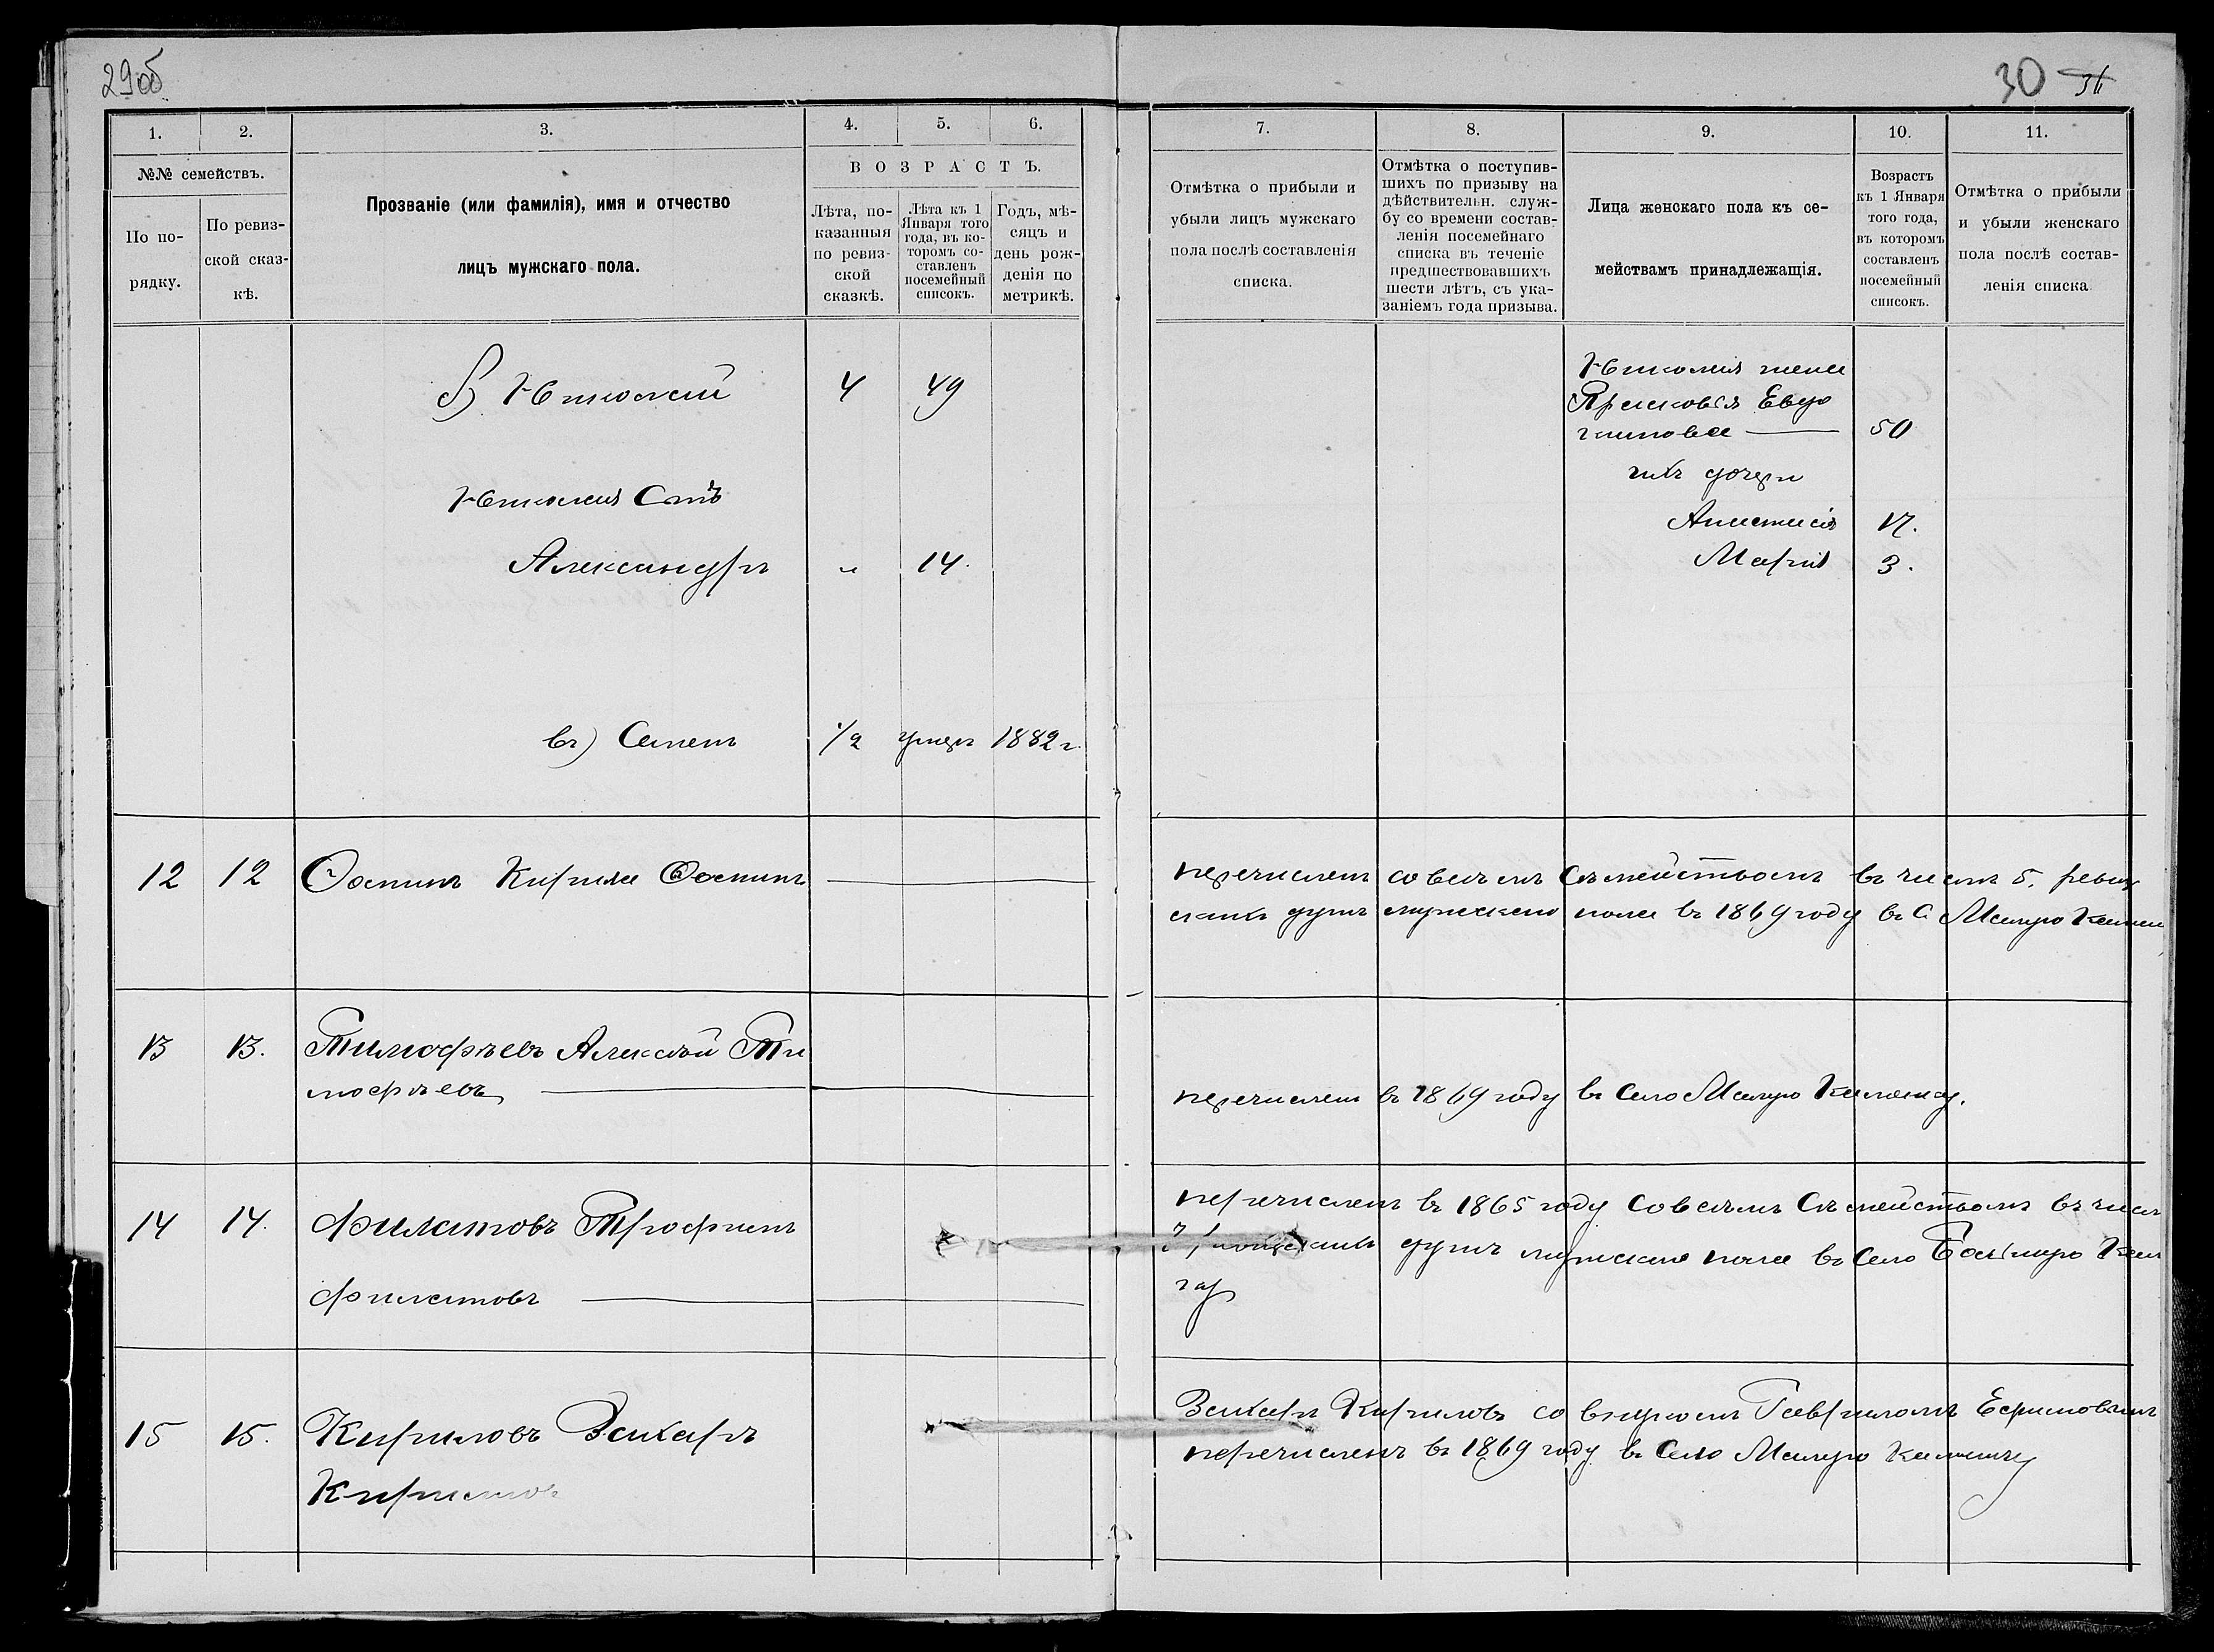 29об
30 31
1.
2.
3.
4.
5.
6.
7.
8.
9.
10.
11.
№№ семействъ.
По по-
рядку.
По ревиз-
ской сказ-
кѣ.
Прозваніе (или фамилія), имя и отчество
лицъ мужскаго пола.
ВОЗРАСТЪ.
Лѣта, по-
казанныя
по ревиз-
ской
сказкѣ.
Лѣта къ 1
Января того
года, въ ко-
торомъ со-
ставленъ
посемейный
списокъ.
Годъ, мѣ-
сяцъ и
день рож-
денія по
метрикѣ.
Отмѣтка о прибыли и
убыли лицъ мужскаго
пола послѣ составленія
списка.
Отмѣтка о поступив-
шихъ по призыву на
дѣйствительн. служ-
бу со времени состав-
ленія посемейнаго
списка въ теченіе
предшествовавшихъ
шести лѣтъ, съ ука-
заніемъ года призыва.
Лица женскаго пола къ се-
мействамъ принадлежащія.
Возрастъ
къ 1 Января
того года,
въ которомъ
составленъ
посемейный
списокъ.
Отмѣтка о прибыли
и убыли женскаго
пола послѣ состав-
ленія списка
б) Николай 4 49
Николая жена
Прасковья Евдо
кимова 50
ихъ дочери
Николая Сынъ
Анастасія 17.
Александръ " 14.
Марія 3.
въ) Семенъ 1/2 умеръ 1882 г.
12 12 Осипъ Кирила Осипъ
перечисленъ со всемъ Семействомъ въ числѣ 5. ревиз
скихъ душъ мужскаго пола въ 1869 году въ С Малую
13 13. Тимофѣевъ Алексѣй Ти
мофѣевъ
перечисленъ въ 1869 году въ Село Малую
14 14. Филатовъ Трофимъ
Филатовъ
перечисленъ въ 1865 году со всемъ Семействомъ въ числѣ
душъ мужскаго пола въ Село Большую
15 15. Кириловъ Захаръ
Кириловъ
Захаръ Кириловъ со внукомъ Гавриломъ Ефимовымъ
перечисленъ въ 1869 году въ Село Малую